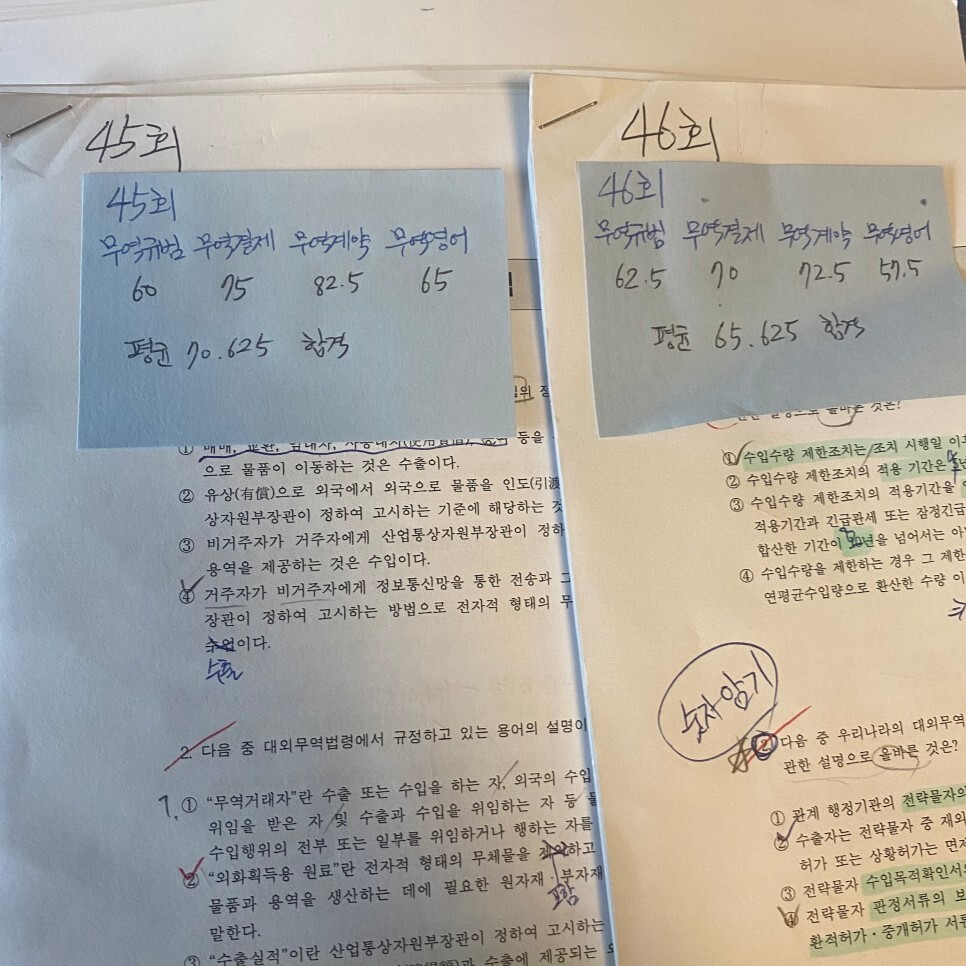 45회
45회
무역규범 무역결제 무역계약 무역영어
60 75 82.5 65
평균 70.625 합격
① 매매, 교환, 임대차, 사용대차(使用貸借), 등을
으로 물품이 이동하는 것은 수출이다.
② 유상(有償)으로 외국에서 외국으로 물품을 인도(引渡
상자원부장관이 정하여 고시하는 기준에 해당하는 것
③ 비거주자가 거주자에게 산업통상자원부장관이 정하
용역을 제공하는 것은 수입이다.
④ 거주자가 비거주자에게 정보통신망을 통한 전송과 그
장관이 정하여 고시하는 방법으로 전자적 형태의 무
수입이다.
수출
2. 다음 중 대외무역법령에서 규정하고 있는 용어의 설명이
1. ① “무역거래자”란 수출 또는 수입을 하는 자, 외국의 수입
위임을 받은 자 및 수출과 수입을 위임하는 자 등 물
수입행위의 전부 또는 일부를 위임하거나 행하는 자를
② “외화획득용 원료”란 전자적 형태의 무체물을 제외하고
물품과 용역을 생산하는 데에 필요한 원자재·부자재
포함
말한다.
③ “수출실적”이란 산업통상자원부장관이 정하여 고시하는
수출에 제공되는
46회
46회
무역규범 무역결제 무역계약 무역영어
62.5 70 72.5 57.5
평균 65.625 합격
관한 설명으로 올바른 것은?
① 수입수량 제한조치는 조치 시행일 이후
② 수입수량 제한조치의 적용 기간은
③ 수입수량 제한조치의 적용기간을
적용기간과 긴급관세 또는 잠정긴급
합산한 기간이 년을 넘어서는 아
④ 수입수량을 제한하는 경우 그 제한
연평균수입량으로 환산한 수량 이
숫자암기
2. 다음 중 우리나라의 대외무역
관한 설명으로 올바른 것은?
① 관계 행정기관의 전략물자의
② 수출자는 전략물자 중 재외
허가 또는 상황허가는 면제
③ 전략물자 수입목적확인서의
④ 전략물자 판정서류의 보
환적허가·중개허가 서류